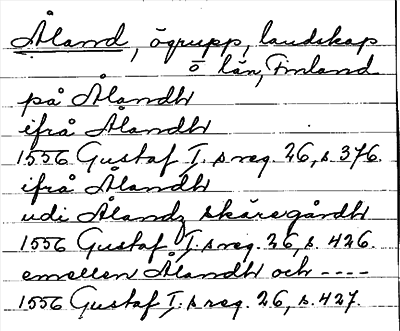 Åland, ögrupp, landskap
o län, Finland
på Ålandh
ifrå Ålandh
1556 Gustaf I. s reg. 26, s. 376.
ifrå Ålandh
udi Ålandz skäregårdh
1556 Gustaf I. s reg. 26, s. 426.
emellen Ålandh och ----
1556 Gustaf I. s reg. 26, s. 427.